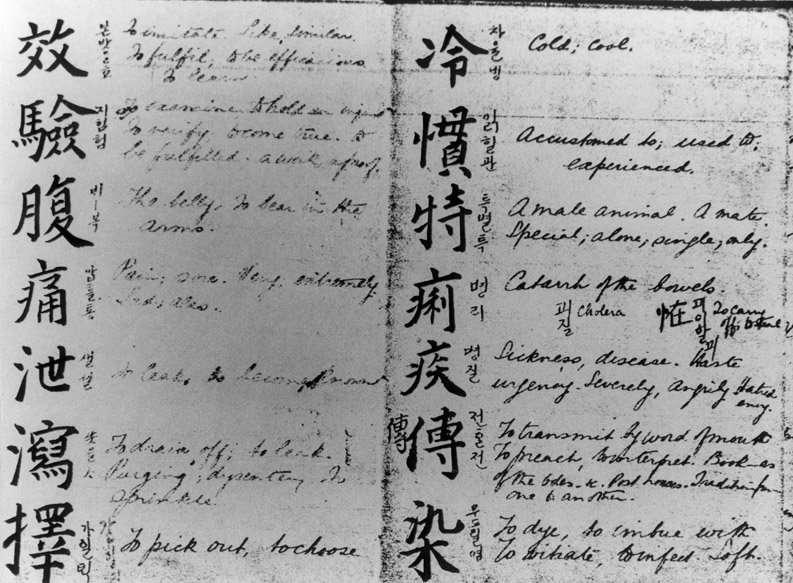 效
To imitate. Like, similar.
To fulfil; to be efficacious
To learn
驗
To examine. To hold an
To verify, to come true. to
be fulfilled. a work, a proof.
腹
The belly. To bear in the
arms.
痛
Pain; sore. Very, extremely
泄 샐설
to leak, to become known
瀉
To drain off; to leak.
Purging; dysentery, To
Sprinkle.
擇
To pick out, to choose
冷 차울냉
Cold; Cool.
慣 익힐관
Accustomed to; used to;
experienced.
特 특별특
A male animal. A mate.
Special; alone; single; only.
痢 병리
Catarrh of the bowels.
괴질 Cholera
To carry
疾 병질
Sickness, disease. Haste
urgency. Severely, Angrily Hatred
envy.
傳 傳 전
To transmit by word of mouth
To preach, to interpret. Book-as
of the odes. &c. Post houses. Tradition from
one to another.
染
To dye, to imbue with
To vitiate, to infect. Soft.